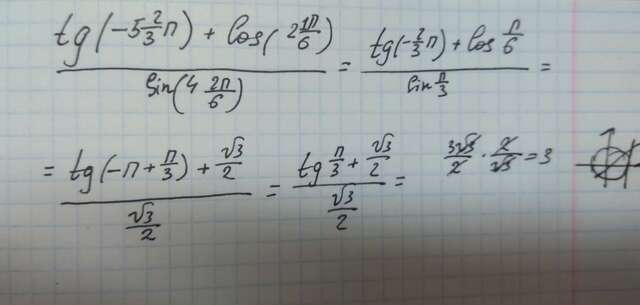 (tg(-5 2/3 п) + cos(2 1п/6)) / sin(4 2п/6) = (tg(-2/3 п) + cos п/6) / sin п/3 =
= (tg(-п + п/3) + √3/2) / (√3/2) = (tg п/3 + √3/2) / (√3/2) = 3√3/2 · 2/√3 = 3